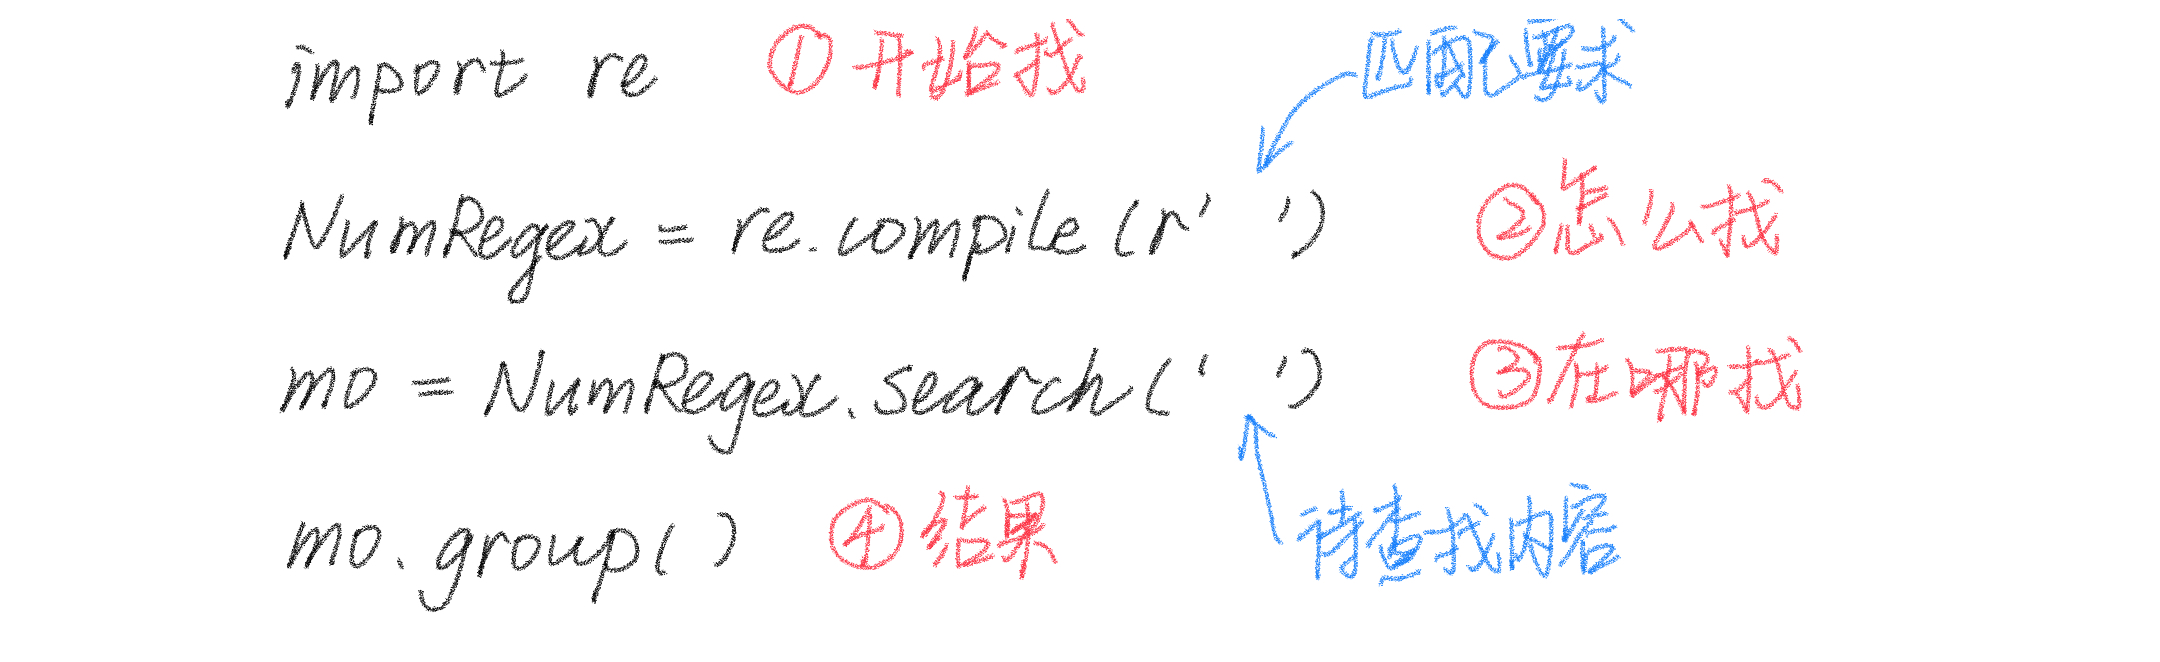 import re ①开始找
匹配要求
NumRegex = re.compile(r' ') ②怎么找
mo = NumRegex.search(' ') ③在哪找
mo.group() ④结果
待查找内容